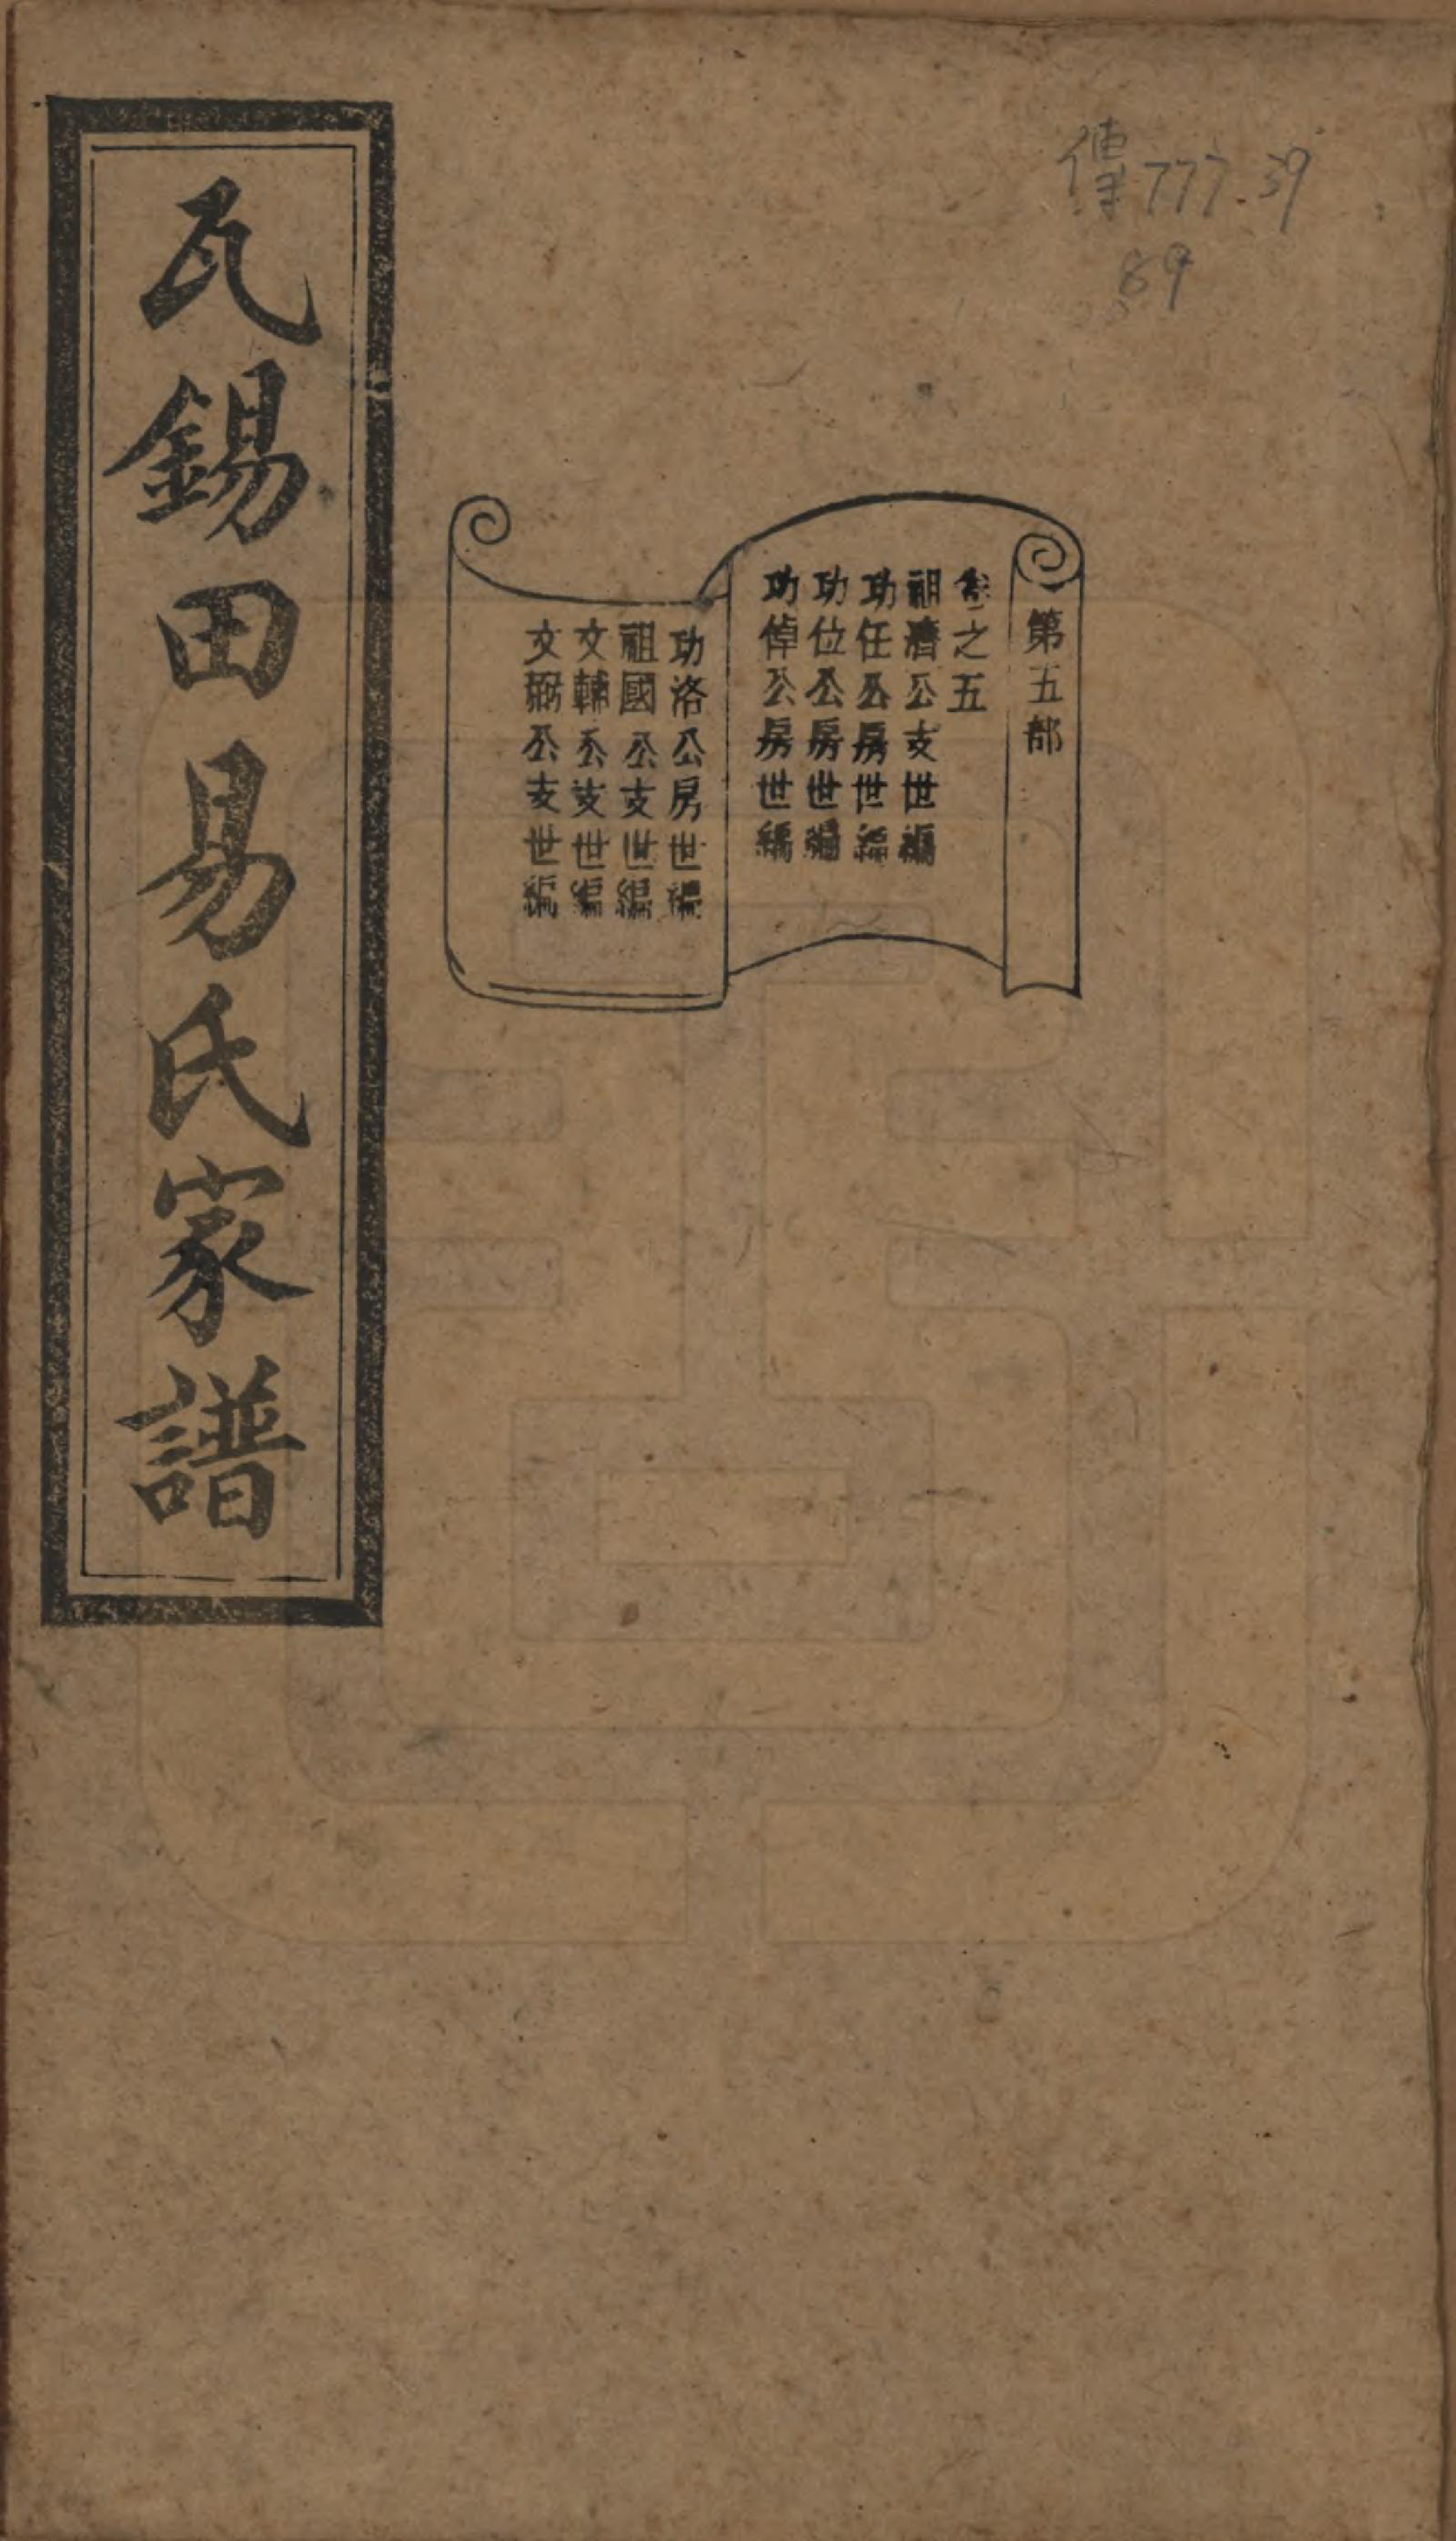 傳777.39
89
第五部
卷之五
祖濟公支世編
功任公房世編
功位公房世編
功倬公房世編
功洛公房世編
祖國公支世編
文輔公支世編
文弼公支世編
瓦錫田易氏家譜